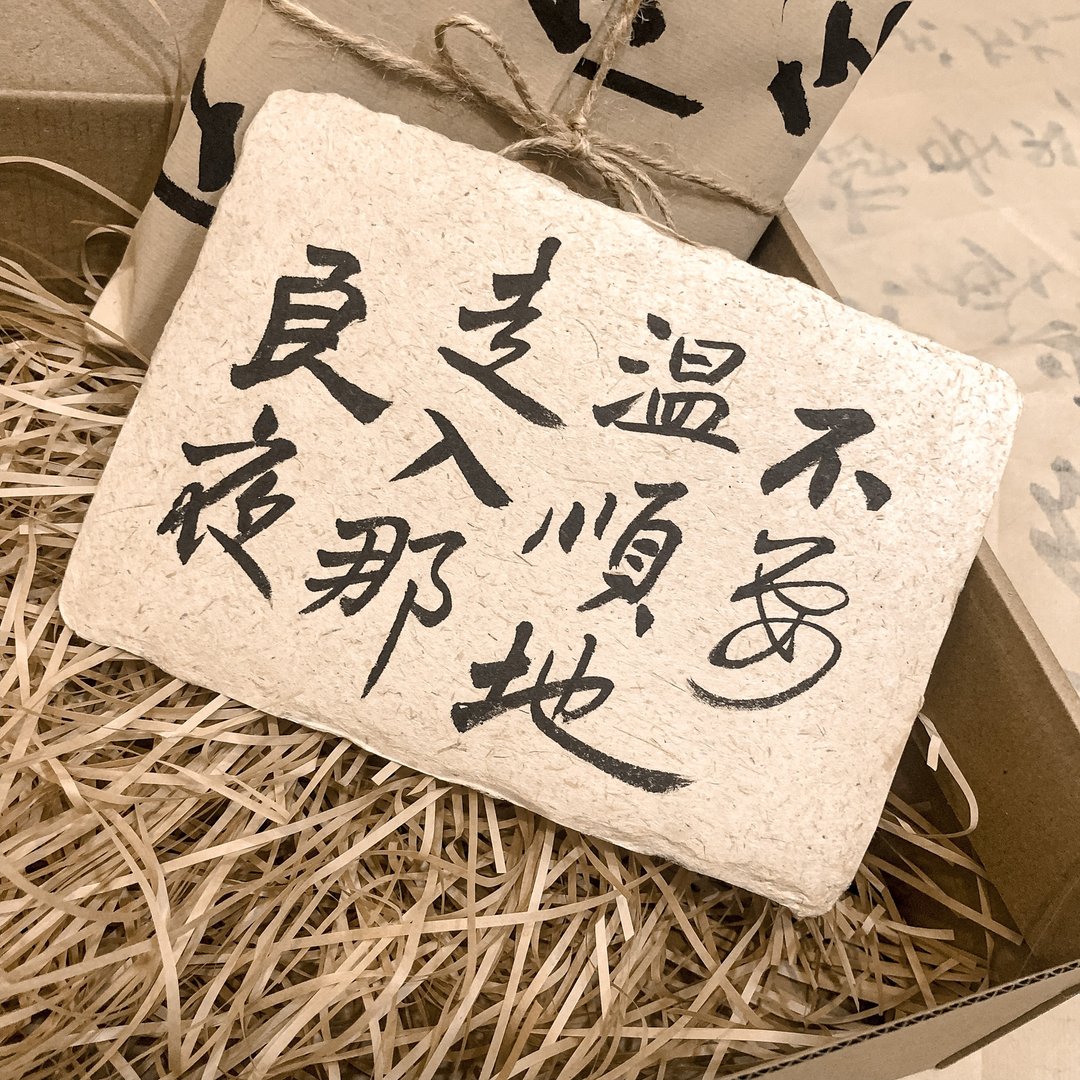 不要
温順地
走入那
良夜